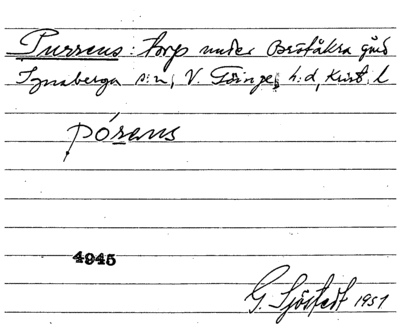 Purrens: torp under Brotåkra gård
Ignaberga s:n, V. Göinge h:d, Krist. l
pórens
4945
G. Sjöstedt 1951